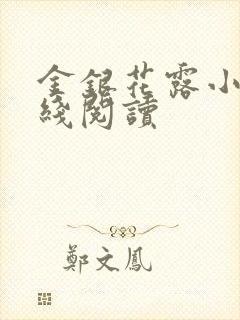 金銀花露小
綫閱讀
鄭文鳳